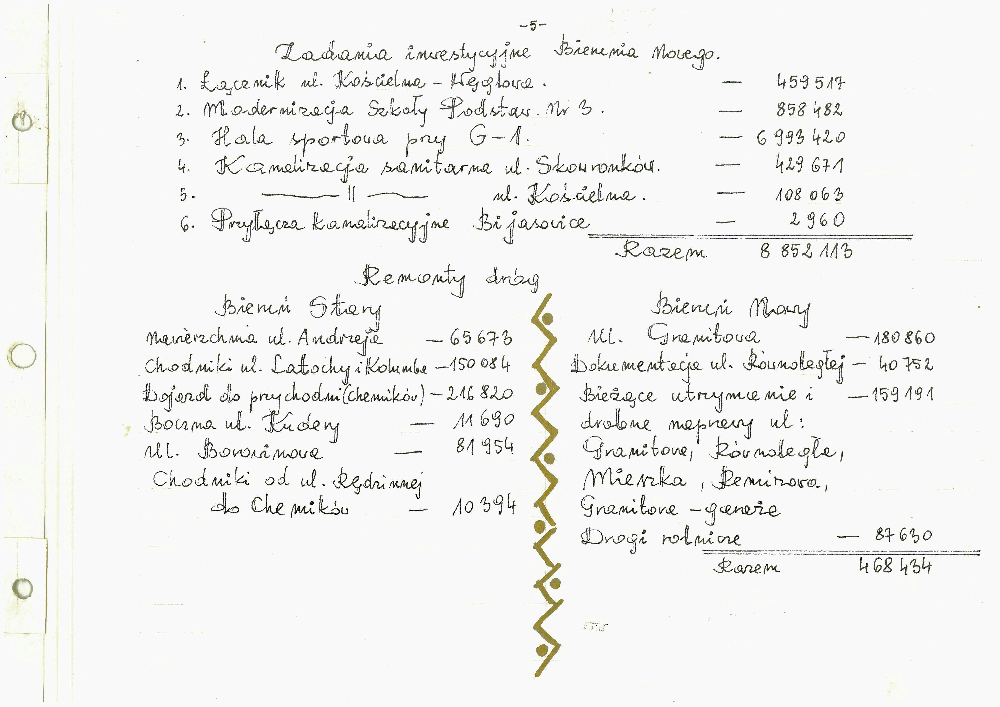 -5-
Zadania inwestycyjne Bierunia Nowego.
1. Łącznik ul. Kościelna - Węglowa. — 459 517
2. Modernizacja Szkoły Podstaw. Nr 3. — 858 482
3. Hala sportowa przy G-1. — 6 993 420
4. Kanalizacja sanitarna ul. Skowronków. — 429 671
5. —— 11 —— ul. Kościelna. — 108 063
6. Przyłącza kanalizacyjne Bijasowice — 2 960
Razem 8 852 113
Remonty dróg
Bieruń Stary
Nawierzchnia ul. Andrzeja — 65 673
Chodniki ul. Latochy i Kolumba — 150 084
Dojazd do przychodni (Chemików) — 216 820
Boczna ul. Kudery — 11 690
Ul. Borowinowa — 81 954
Chodniki od ul. Rędzinnej
do Chemików — 10 394
Bieruń Nowy
Ul. Granitowa — 180 860
Dokumentacja ul. Równoległej — 40 752
Bieżące utrzymanie i — 159 191
drobne naprawy ul:
Granitowa, Równoległa,
Mieszka, Remizowa,
Granitowa - garaże
Drogi rolnicze — 87 630
Razem 468 434